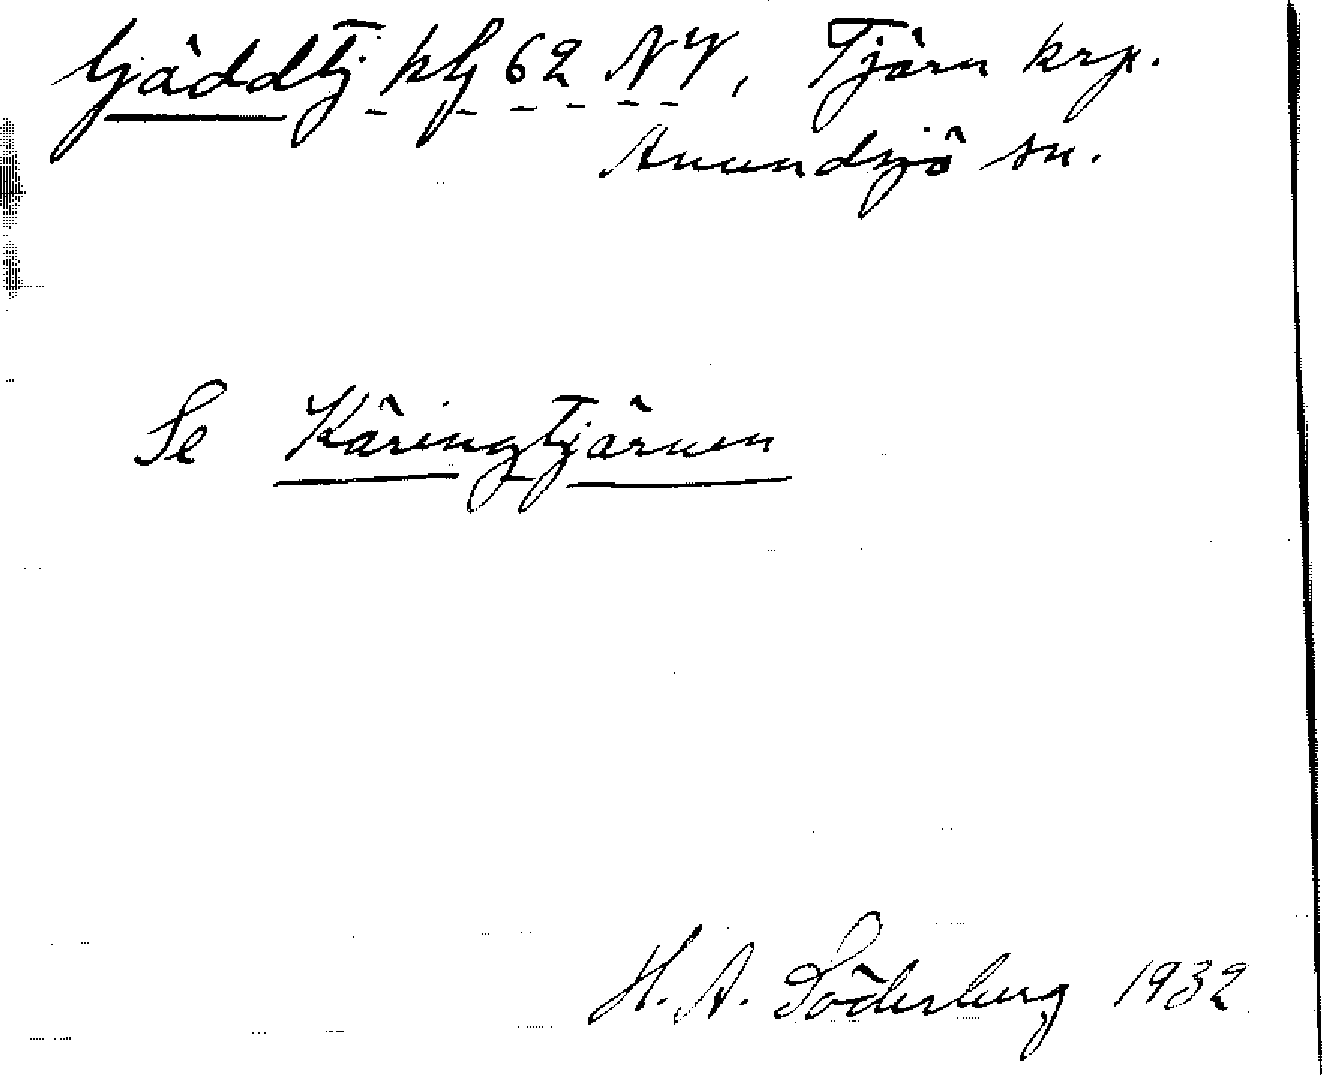 Gäddtj kg 62 NV, Tjärn krp.
Anundsjö sn.
Se Käringtjärnen
H. A. Söderberg 1932